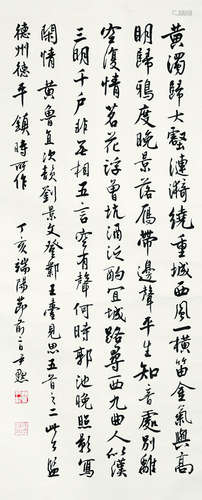 黃濁歸大壑漣漪繞重城西風一橫笛金氣與高
明歸鴉度晚景落雁帶邊聲平生知音處別離
空復情茗花浮曾坑酒泛酌宜城路尋西九曲人似漢
三明千戶非無相五言空有聲何時郭池晚照影寫
閑情 黃魯直次韻劉景文登鄴王臺見思五首之二此公監
德州德平鎮時所作
丁亥端陽節前二日尹默